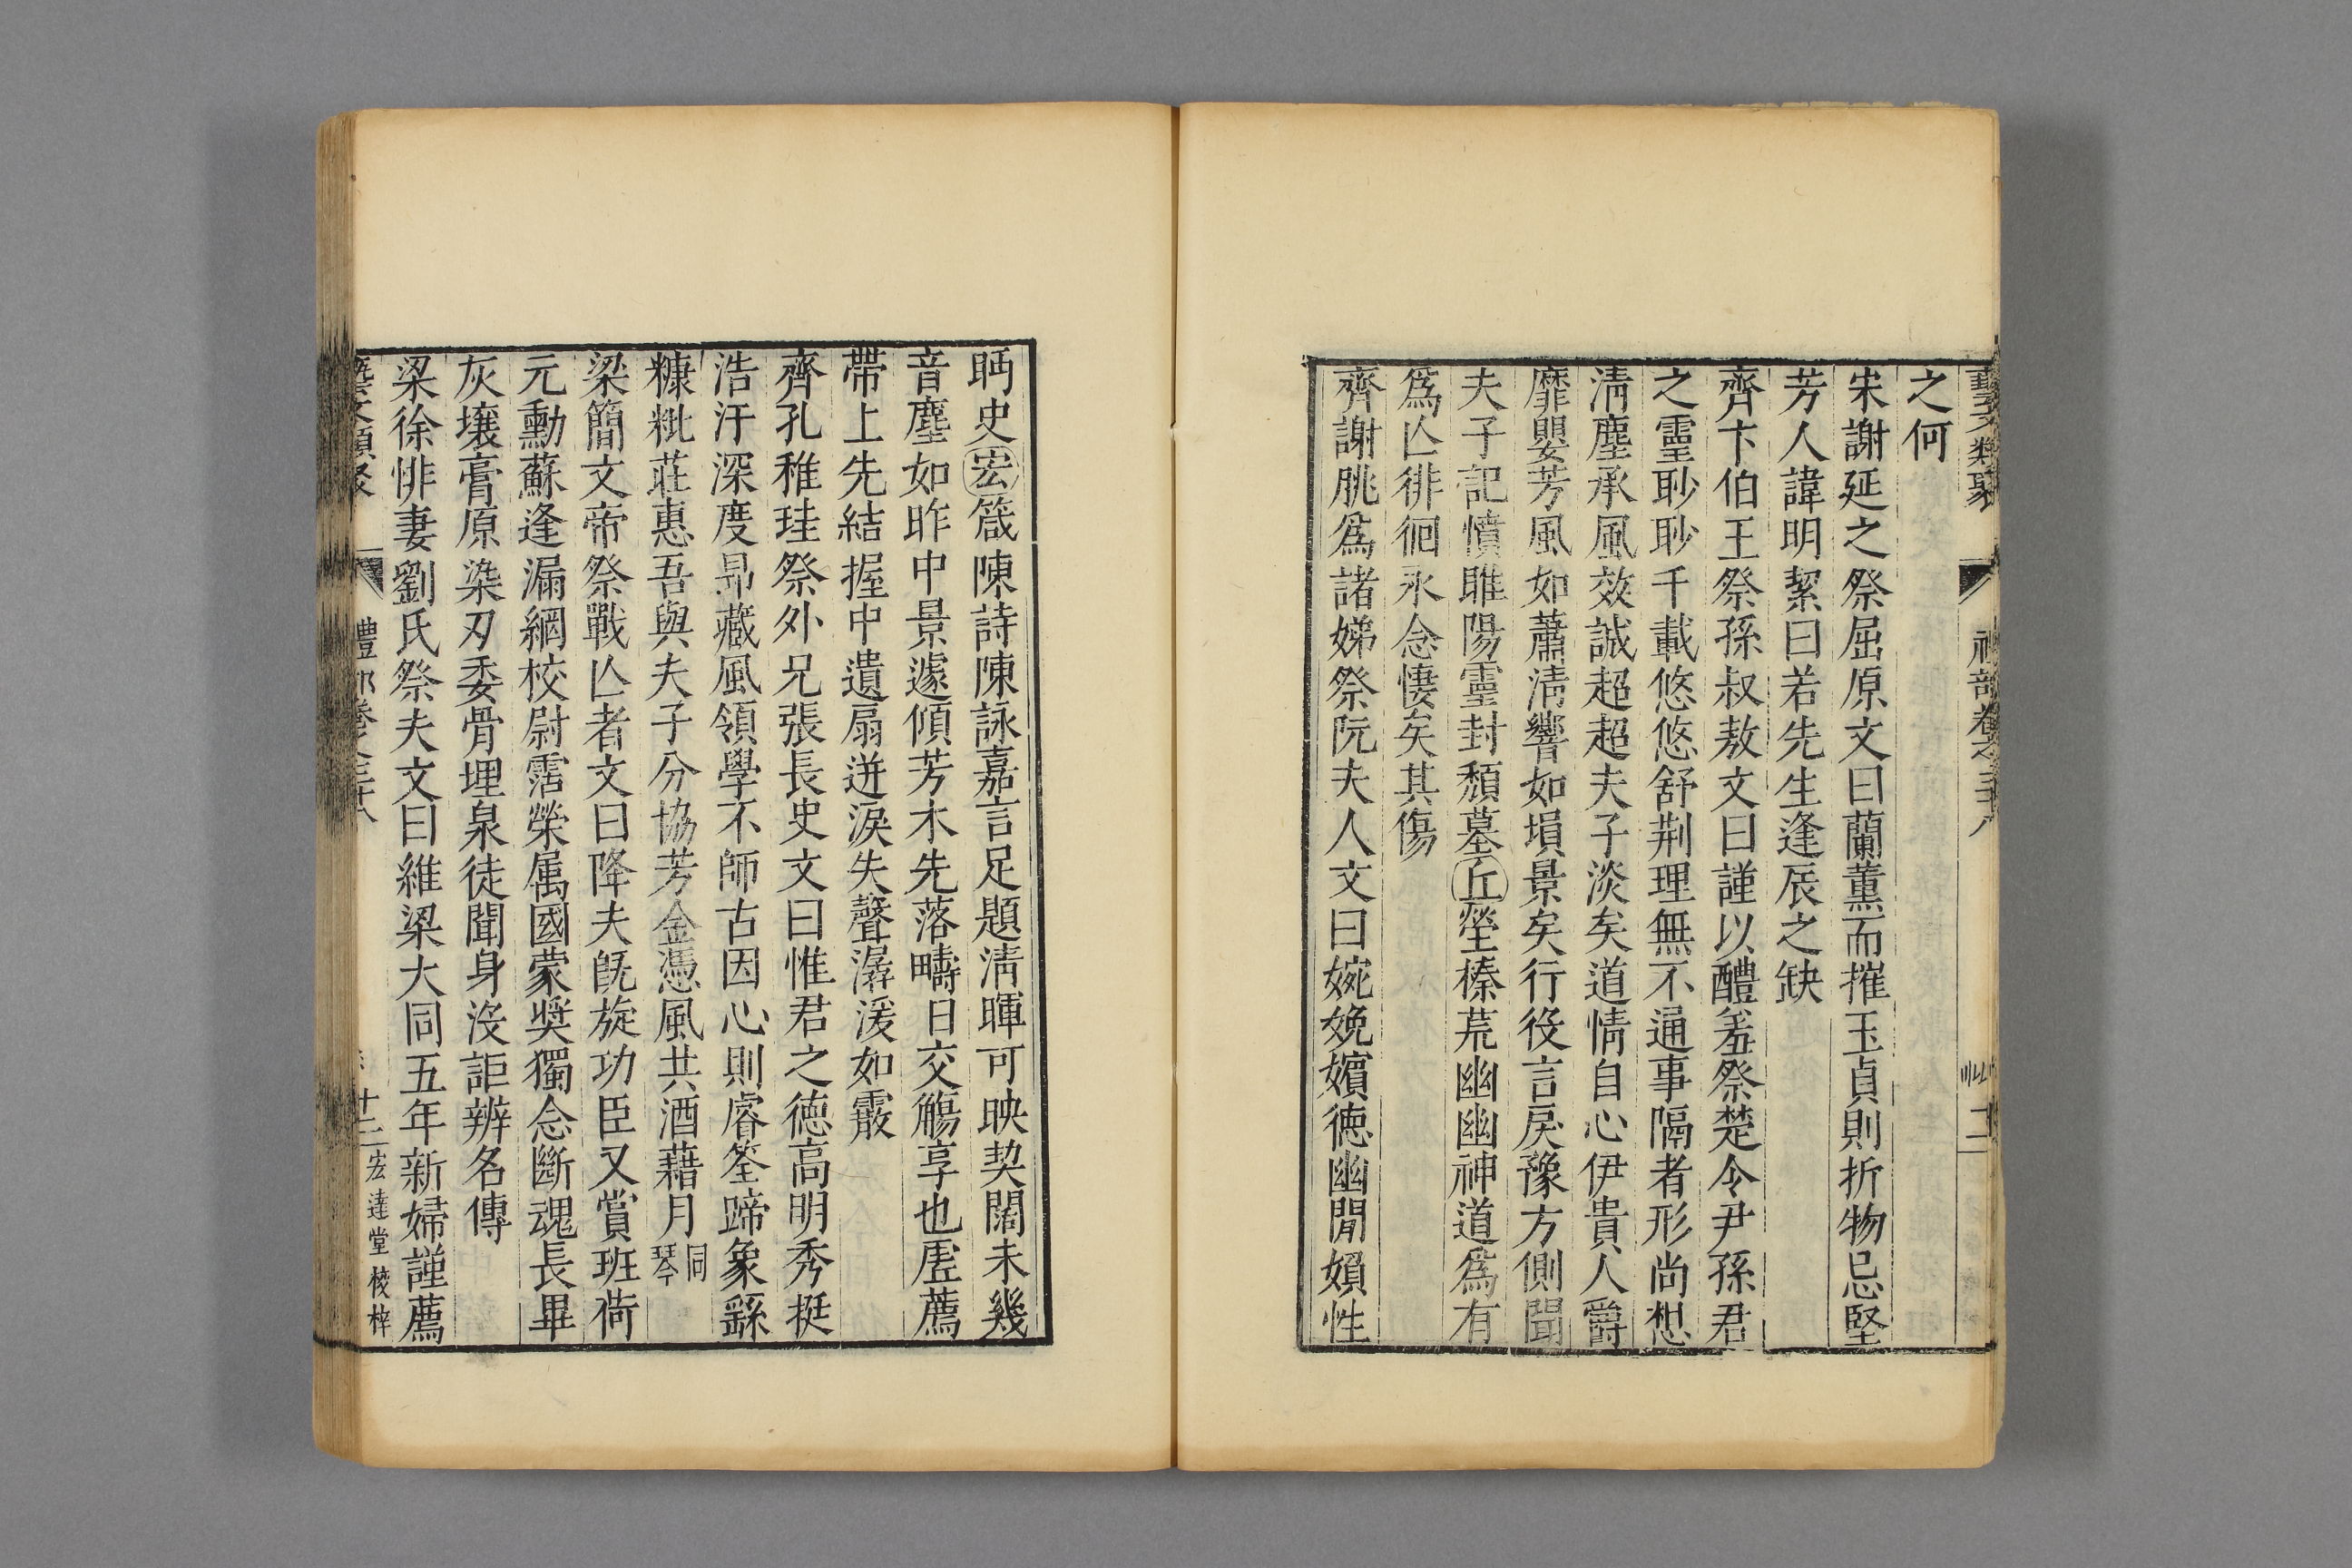 藝文類聚 禮部卷之三十八 十二
之何
宋謝延之祭屈原文曰蘭薰而摧玉貞則折物忌堅
芳人諱明絜曰若先生逢辰之缺
齊卞伯王祭孫叔敖文曰謹以醴羞祭楚令尹孫君
之靈眇眇千載悠悠舒荆理無不通事隔者形尚想
清塵承風效誠超超夫子淡矣道情自心伊貴人爵
靡嬰芳風如蕭清響如塤景矣行役言戾豫方側聞
夫子記憤睢陽靈封頹墓丘塋榛荒幽幽神道爲有
爲亾徘徊永念悽矣其傷
齊謝朓爲諸娣祭阮夫人文曰婉娩嬪徳幽閒嬪性
眄史宏箴陳詩陳詠嘉言足題清暉可映契闊未幾
音塵如昨中景遽傾芳木先落疇日交觴享也虗薦
帶上先結握中遺扇迸淚失聲潺湲如霰
齊孔稚珪祭外兄張長史文曰惟君之徳高明秀挺
浩汗深度昻藏風領學不師古因心則睿筌蹄象繇
糠粃莊惠吾與夫子分協芳金憑風共酒藉月同琴
梁簡文帝祭戰亾者文曰降夫旣旋功臣又賞班荷
元勳蘇逢漏網校尉霑榮属國蒙奬獨念斷魂長畢
灰壤膏原染刃委骨埋泉徒聞身沒詎辨名傳
梁徐悱妻劉氏祭夫文曰維梁大同五年新婦謹薦
藝文類聚 禮部卷之三十八 十二 宏達堂校梓